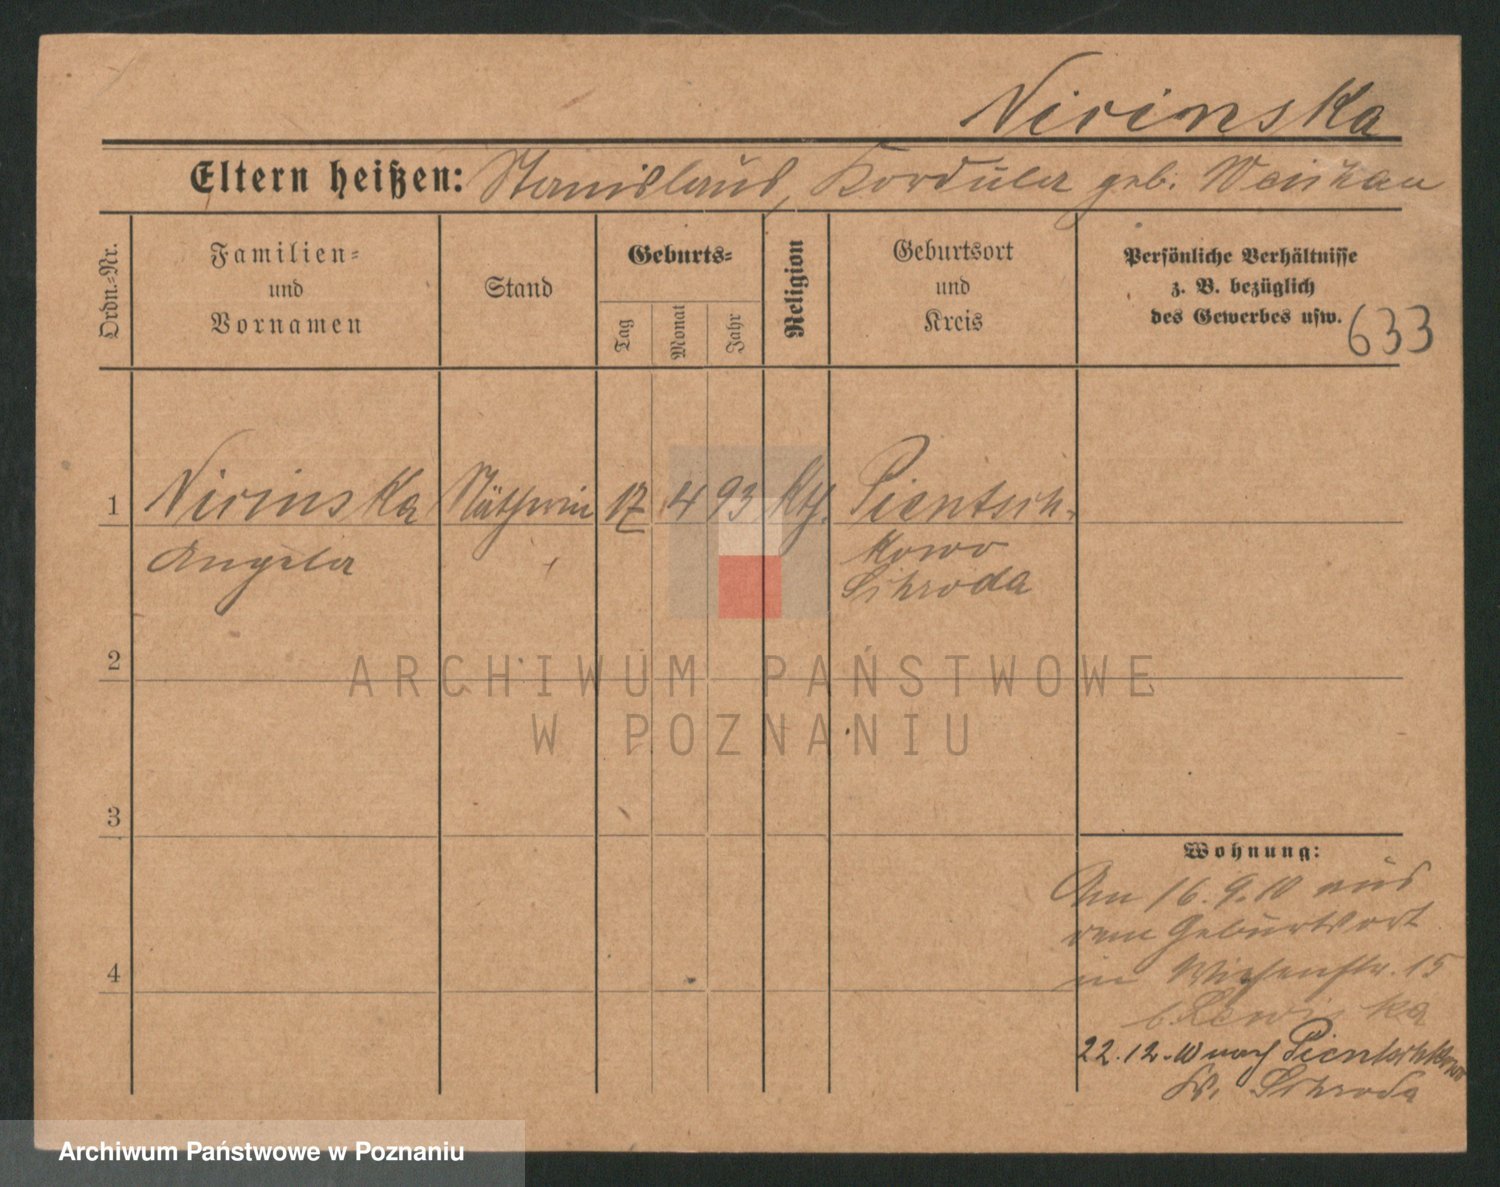 Nirinska
Eltern heißen: Stanislaus, Kordula geb.
Ordn.-Nr.
Familien-
und
Vornamen
Stand
Geburts-
Tag
Monat
Jahr
Religion
Geburtsort
und
Kreis
Persönliche Verhältnisse
z. B. bezüglich
des Gewerbes usw.
633
1 Nirinska Näherin 17 4 93 kth. Pientsch-
Angela kowo
Schroda
2
3
4
Wohnung:
Am 16.9.10 aus
dem Geburtsort
in Wiesenstr. 15
b.
22.12.10 nach Pientschkowo
Kr. Schroda
ARCHIWUM PAŃSTWOWE
W POZNANIU
Archiwum Państwowe w Poznaniu